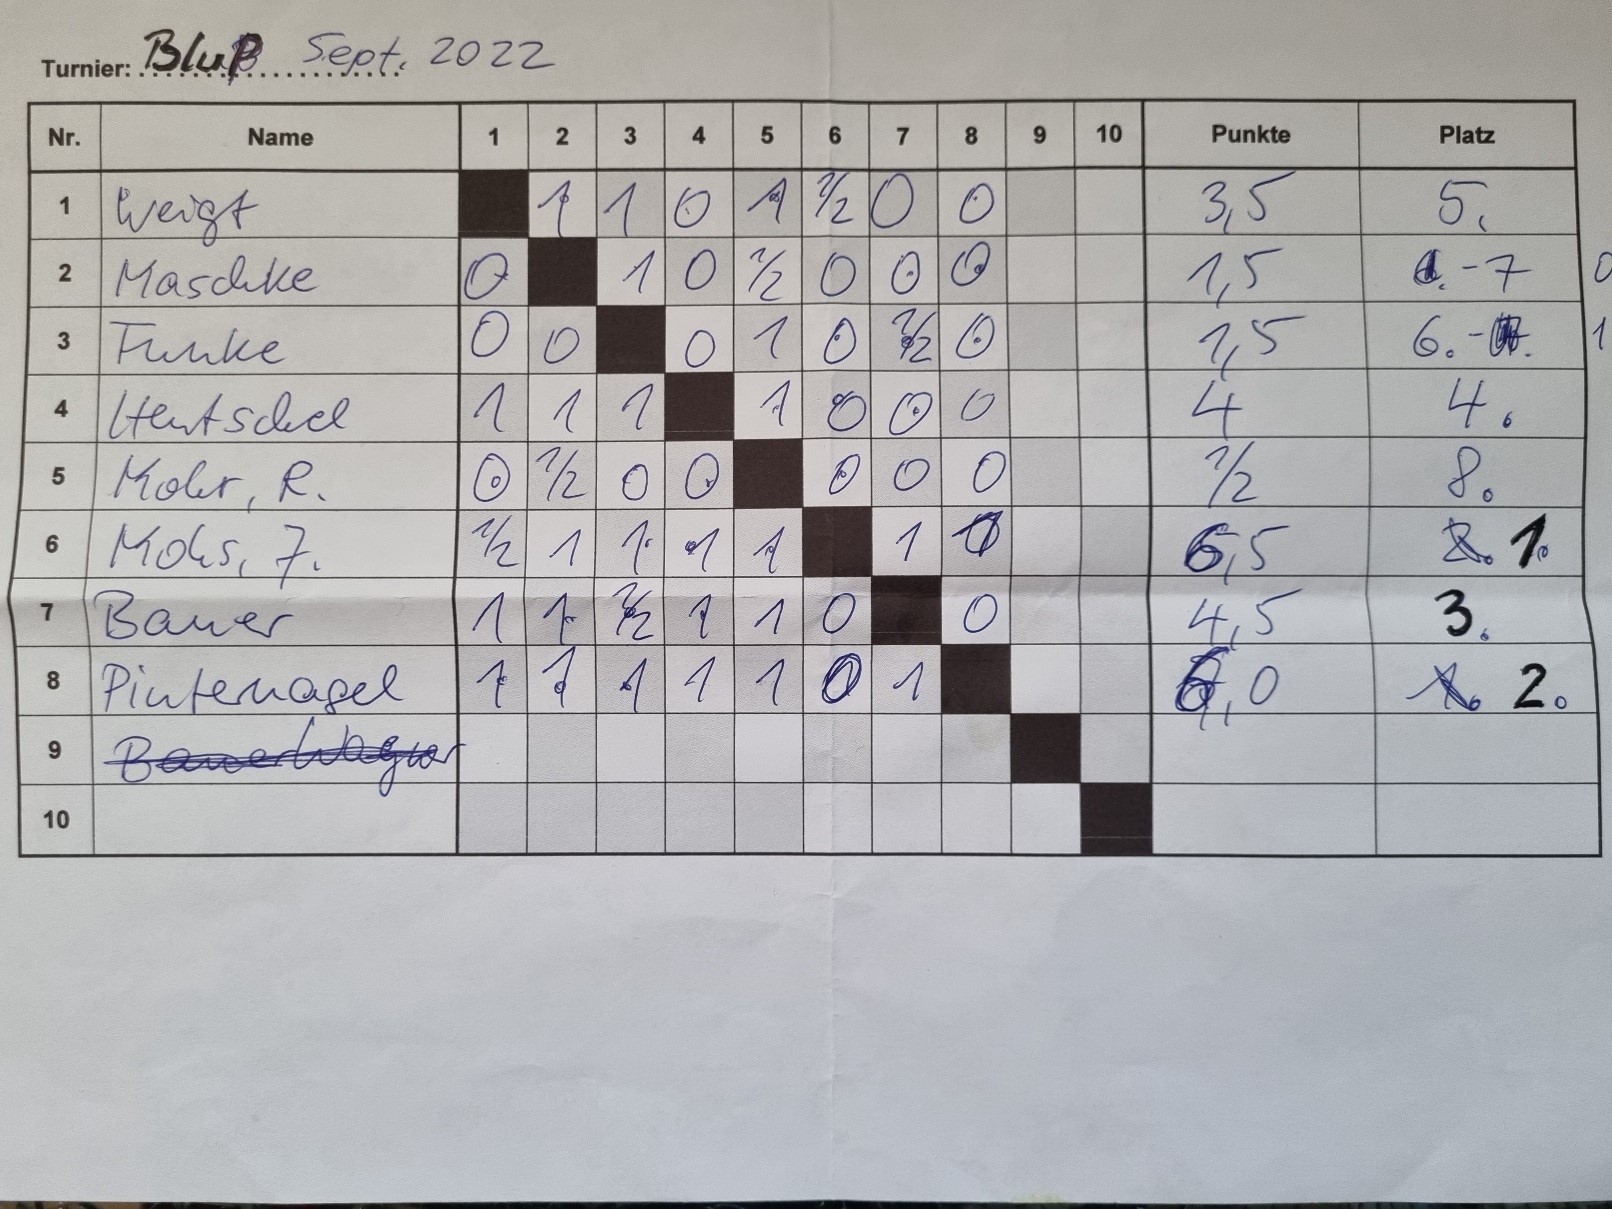 Turnier: Sept. 2022
Nr. Name 1 2 3 4 5 6 7 8 9 10 Punkte Platz
1 Weigt 1 1 0 1 1/2 0 0 3,5 5.
2 Maschke 0 1 0 1/2 0 0 0 1,5 -7 0
3 Funke 0 0 0 1 0 1/2 0 1,5 6.- 1
4 Hentschel 1 1 1 1 0 0 0 4 4.
5 Mohr, R. 0 1/2 0 0 0 0 0 1/2 8.
6 1/2 1 1 1 1 1 6,5 1.
7 Bauer 1 1 1/2 1 1 0 0 4,5 3.
8 Pinternagel 1 1 1 1 1 0 1 ,0 2.
9
10